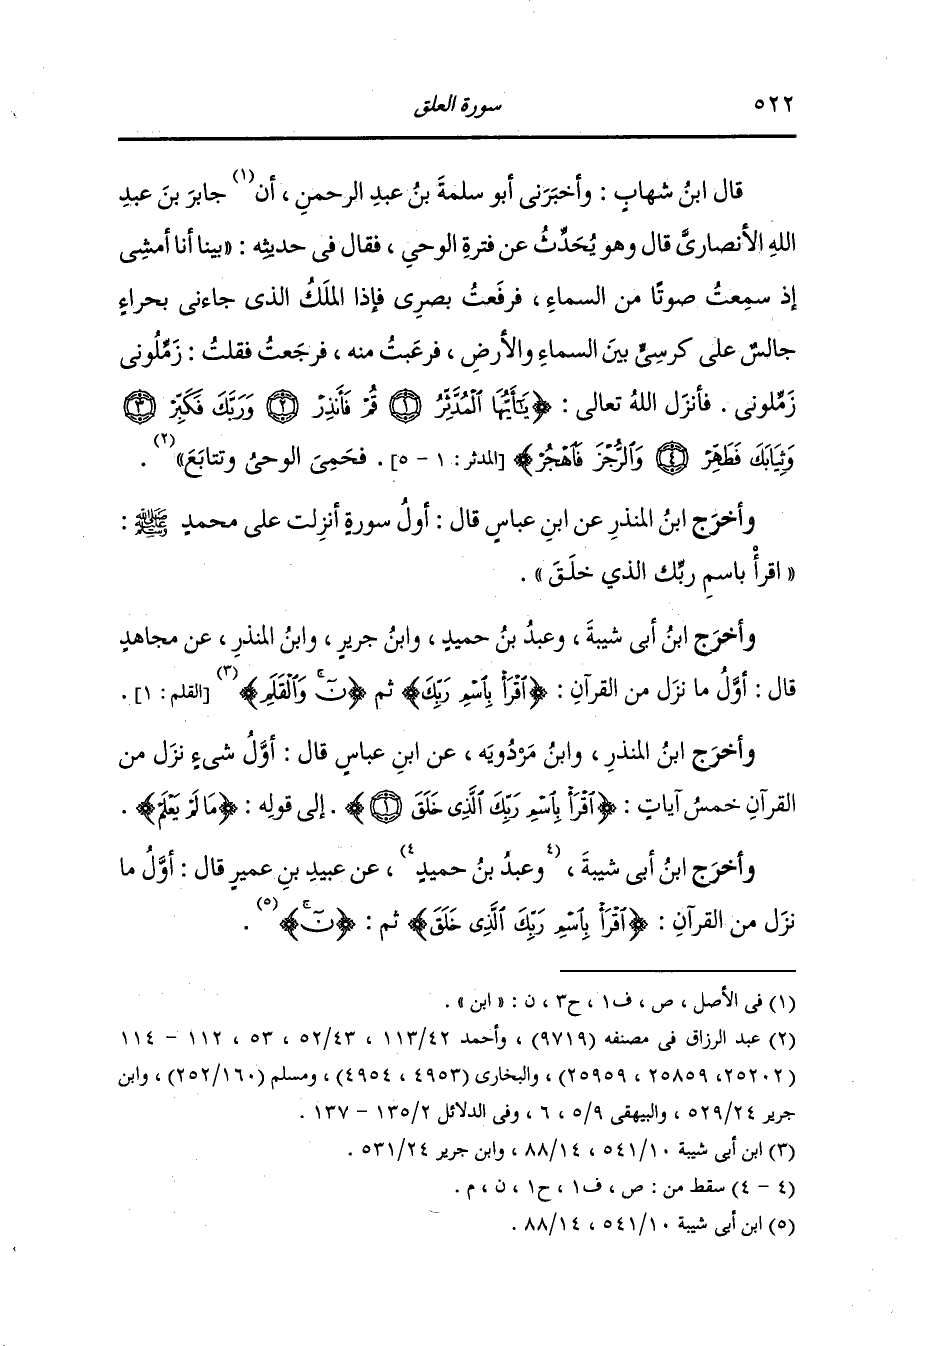 ٥٢٢
سورة العلق
قال ابنُ شهابٍ : وأخبَرَنى أبو سلمةَ بنُ عبدِ الرحمنِ ، أن(١) جابرَ بنَ عبدِ
اللهِ الأنصارىَّ قال وهو يُحَدِّثُ عن فترةِ الوحىِ ، فقال فى حديثِه : «بينا أنا أمشِى
إذ سمِعتُ صوتًا من السماءِ ، فرفَعتُ بصرِى فإذا المَلَكُ الذى جاءنى بحراءٍ
جالسٌ على كرسىٍّ بينَ السماءِ والأرضِ ، فرعَبتُ منه ، فرجَعتُ فقلتُ : زَمِّلُونى
زَمِّلونى . فأنزَل اللهُ تعالى : ﴿يَٰٓأَيُّهَا ٱلْمُدَّثِّرُ ۝١ قُمْ فَأَنذِرْ ۝٢ وَرَبَّكَ فَكَبِّرْ ۝٣
وَثِيَابَكَ فَطَهِّرْ ۝٤ وَٱلرُّجْزَ فَٱهْجُرْ﴾ [المدثر : ١ - ٥] . فحَمِىَ الوحىُ وتتابَعَ»(٢) .
وأخرَج ابنُ المنذرِ عن ابنِ عباسٍ قال : أولُ سورةٍ أنزِلت على محمدٍ ﷺ :
« اقرأْ باسمِ ربِّك الذي خلَقَ » .
وأخرَج ابنُ أبى شيبةَ ، وعبدُ بنُ حميدٍ ، وابنُ جريرٍ ، وابنُ المنذرِ ، عن مجاهدٍ
قال : أوَّلُ ما نزَل من القرآنِ : ﴿ٱقْرَأْ بِٱسْمِ رَبِّكَ﴾ ثم ﴿نٓ ۚ وَٱلْقَلَمِ﴾(٣) [القلم : ١] .
وأخرَج ابنُ المنذرِ ، وابنُ مَرْدُويَه ، عن ابنِ عباسٍ قال : أوَّلُ شىءٍ نزَل من
القرآنِ خمسُ آياتٍ : ﴿ٱقْرَأْ بِٱسْمِ رَبِّكَ ٱلَّذِى خَلَقَ ۝١﴾ . إلى قولِه : ﴿مَا لَمْ يَعْلَمْ﴾ .
وأخرَج ابنُ أبى شيبةَ ، (٤وعبدُ بنُ حميدٍ٤) ، عن عبيدِ بنِ عميرٍ قال : أوَّلُ ما
نزَل من القرآنِ : ﴿ٱقْرَأْ بِٱسْمِ رَبِّكَ ٱلَّذِى خَلَقَ﴾ ثم : ﴿نٓ ۚ﴾(٥) .
(١) فى الأصل ، ص ، ف١ ، ح٣ ، ن : « ابن » .
(٢) عبد الرزاق فى مصنفه (٩٧١٩) ، وأحمد ١١٣/٤٢ ، ٥٢/٤٣ ، ٥٣ ، ١١٢ - ١١٤
(٢٥٢٠٢، ٢٥٨٥٩ ، ٢٥٩٥٩) ، والبخارى (٤٩٥٣ ، ٤٩٥٤) ، ومسلم (٢٥٢/١٦٠) ، وابن
جرير ٥٢٩/٢٤ ، والبيهقى ٥/٩ ، ٦ ، وفى الدلائل ١٣٥/٢ - ١٣٧ .
(٣) ابن أبى شيبة ٥٤١/١٠ ، ٨٨/١٤ ، وابن جرير ٥٣١/٢٤ .
(٤ - ٤) سقط من : ص ، ف١ ، ح١ ، ن ، م .
(٥) ابن أبى شيبة ٥٤١/١٠ ، ٨٨/١٤ .